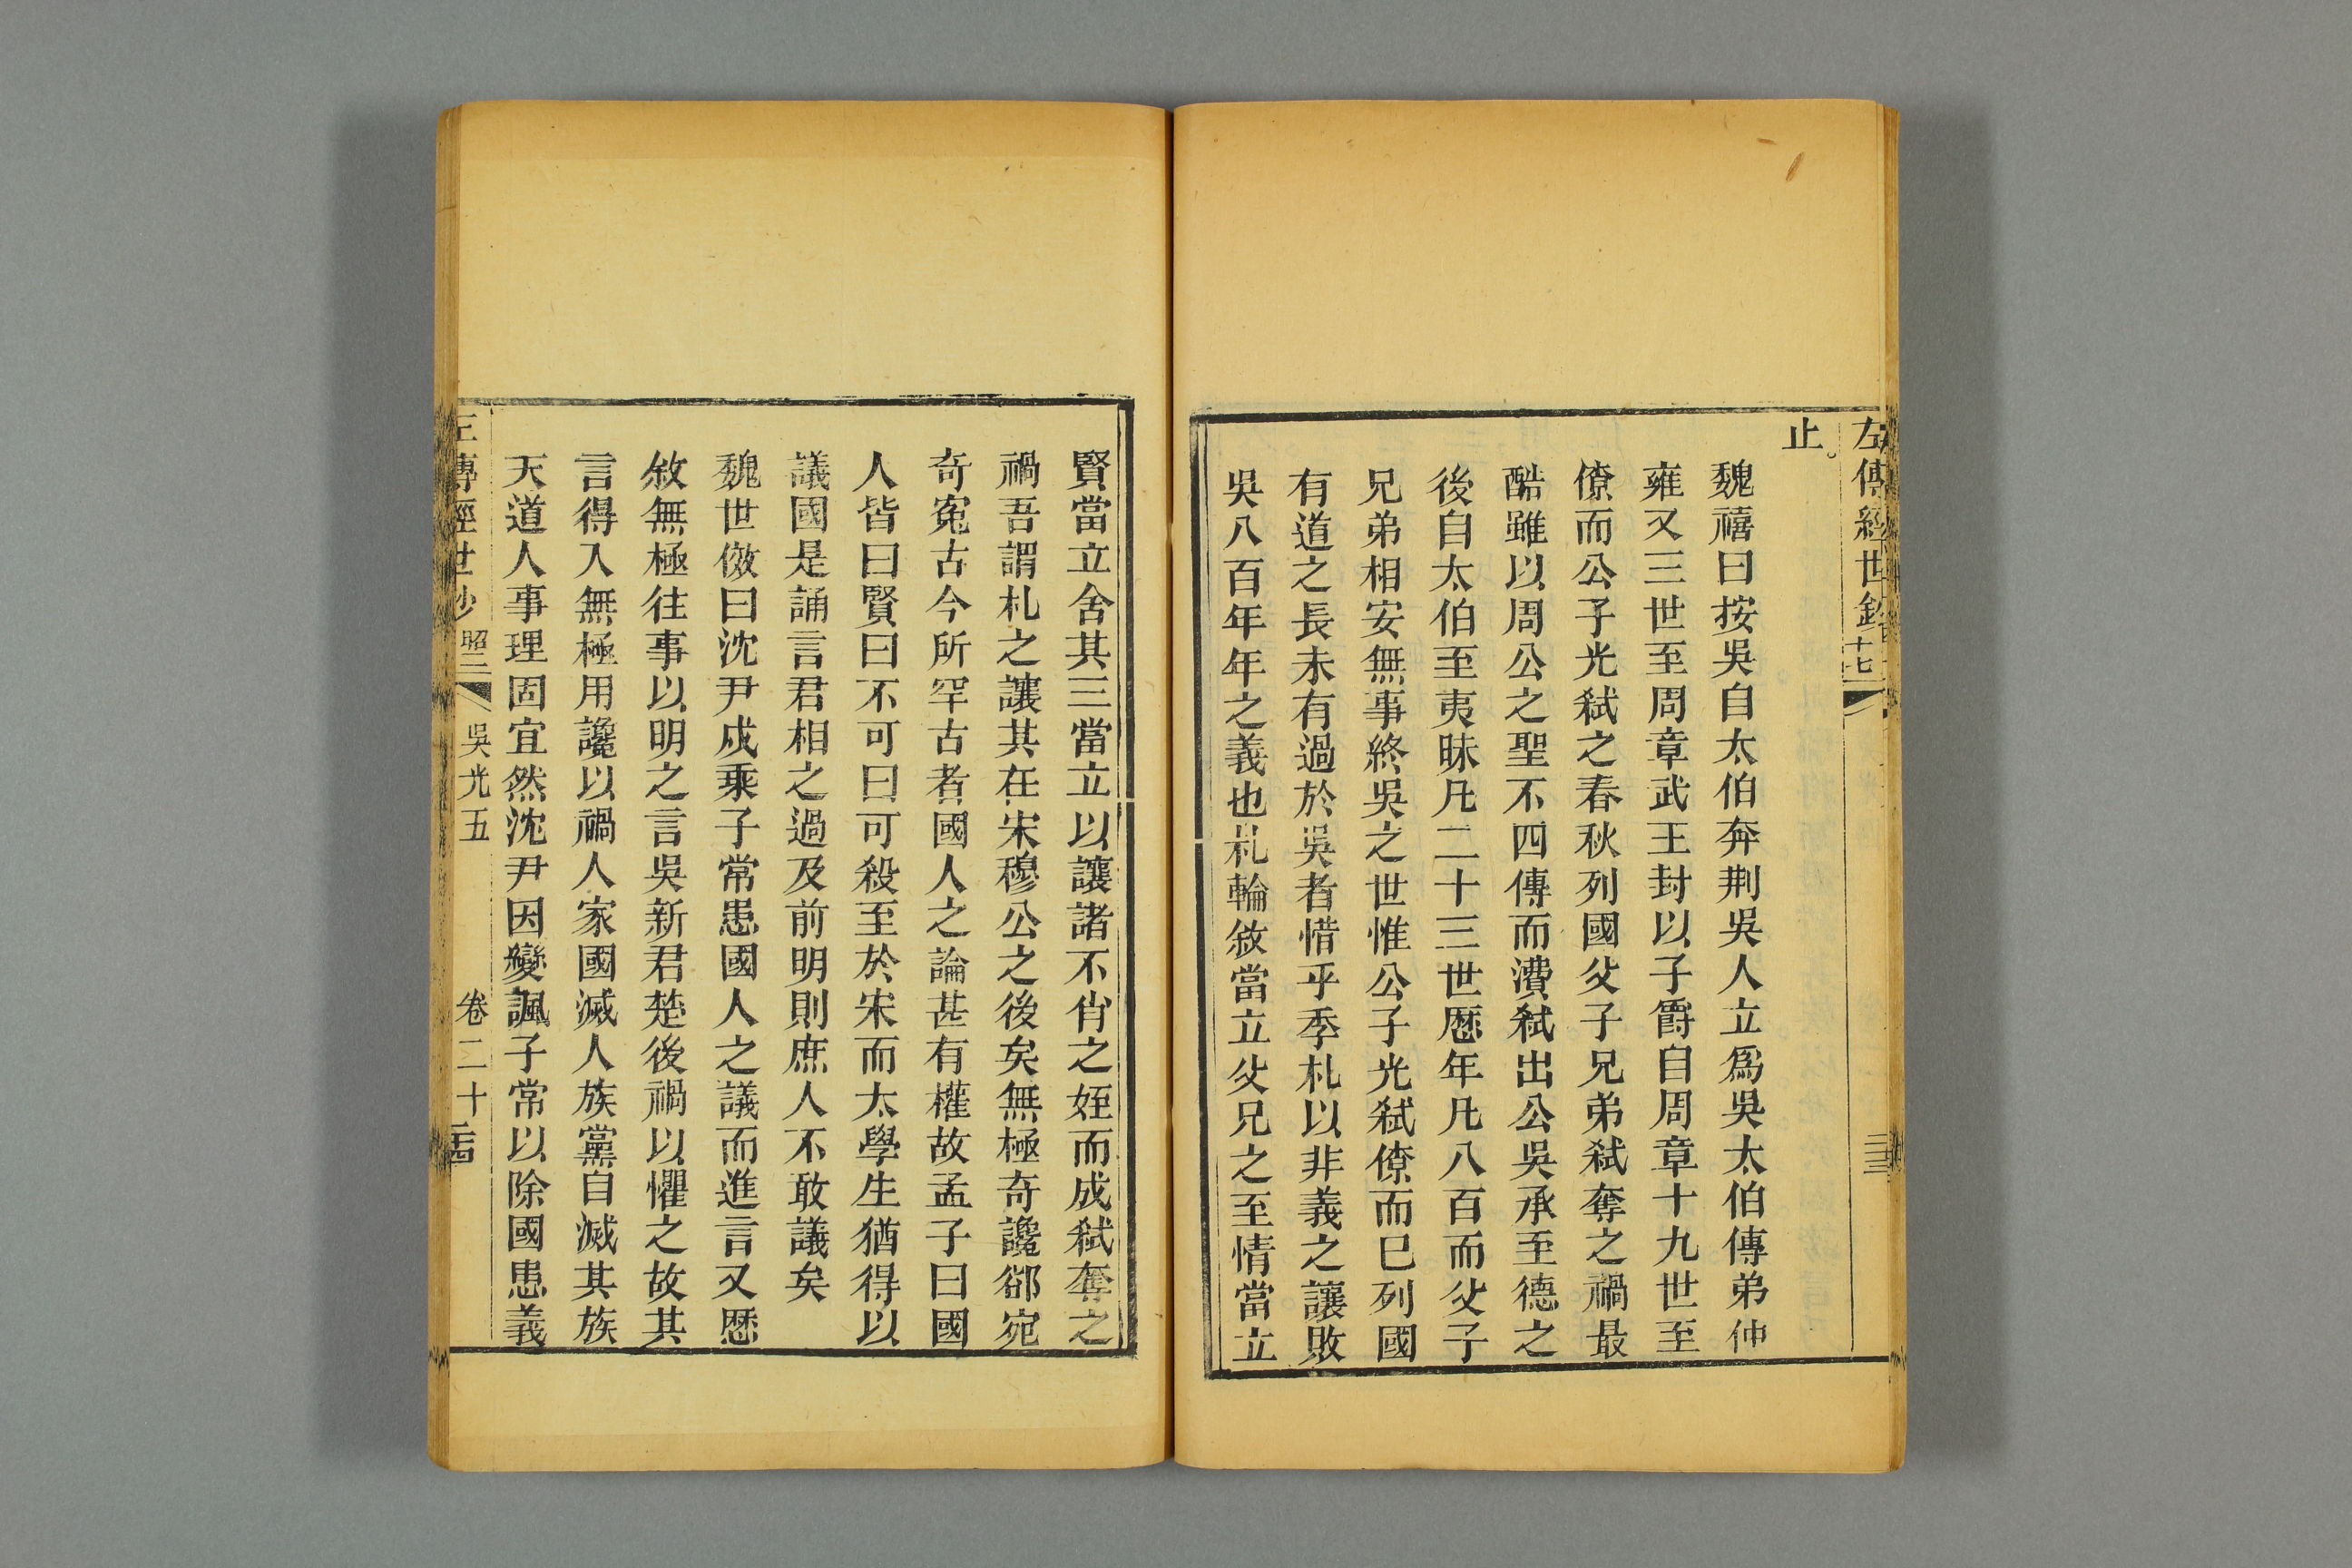 左傳經世鈔
止。
魏禧曰按吳自太伯奔荆吳人立爲吳太伯傳弟仲
雍又三世至周章武王封以子爵自周章十九世至
僚而公子光弑之春秋列國父子兄弟弑奪之禍最
酷雖以周公之聖不四傳而灒弑出公吳承至德之
後自太伯至夷昧凡二十三世歷年凡八百而父子
兄弟相安無事終吳之世惟公子光弑僚而已列國
有道之長未有過於吳者惜乎季札以非義之讓敗
吳八百年年之義也札輪敘當立父兄之至情當立
賢當立舍其三當立以讓諸不肖之姪而成弑奪之
禍吾謂札之讓其在宋穆公之後矣無極奇讒郤宛
奇寃古今所罕古者國人之論甚有權故孟子曰國
人皆曰賢曰不可曰可殺至於宋而太學生猶得以
議國是誦言君相之過及前明則庶人不敢議矣
魏世傚曰沈尹戍乘子常患國人之議而進言又歷
敘無極往事以明之言吳新君楚後禍以懼之故其
言得入無極用讒以禍人家國滅人族黨自滅其族
天道人事理固宜然沈尹因變諷子常以除國患義
傳經世鈔 昭二 吳光五 卷二十